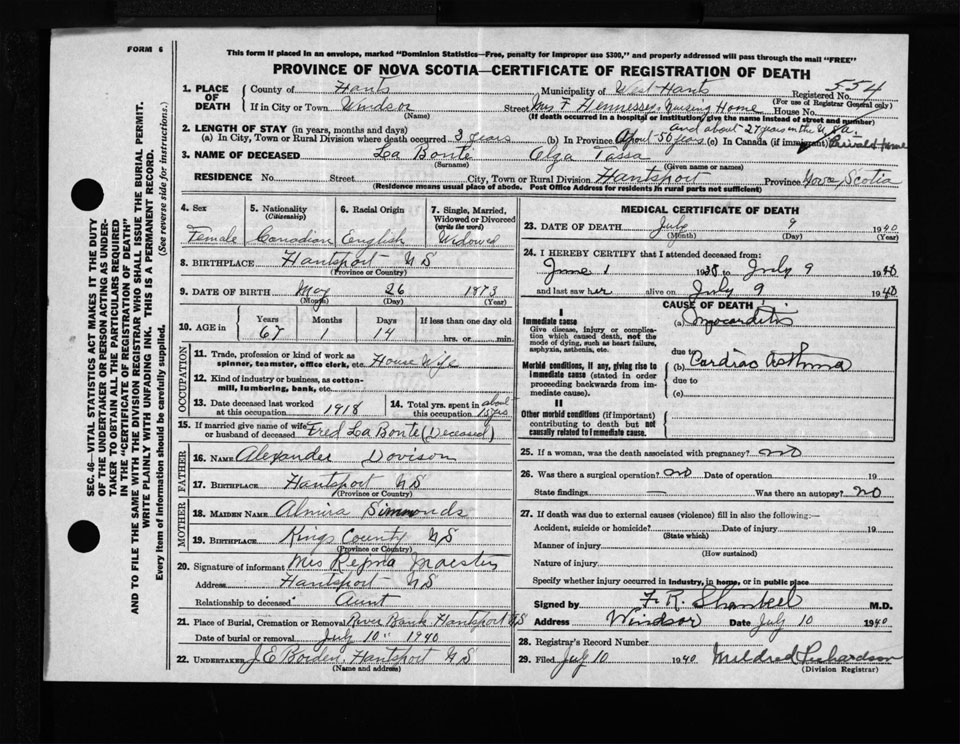 FORM 6
This form if placed in an envelope, marked "Dominion Statistics—Free, penalty for improper use $300," and properly addressed will pass through the mail "FREE"
PROVINCE OF NOVA SCOTIA—CERTIFICATE OF REGISTRATION OF DEATH
SEC. 46—VITAL STATISTICS ACT MAKES IT THE DUTY
OF THE UNDERTAKER OR PERSON ACTING AS UNDER-
TAKER TO OBTAIN ALL THE PARTICULARS REQUIRED
IN THE "CERTIFICATE OF REGISTRATION OF DEATH"
AND TO FILE THE SAME WITH THE DIVISION REGISTRAR WHO SHALL ISSUE THE BURIAL PERMIT.
WRITE PLAINLY WITH UNFADING INK. THIS IS A PERMANENT RECORD.
Every item of information should be carefully supplied. (See reverse side for instructions.)
1. PLACE OF DEATH County of Hants Municipality of West Hants Registered No. 554
(For use of Registrar General only)
If in City or Town Windsor Street Mrs F Hennessey, Nursing Home House No.
(Name) (If death occurred in a hospital or institution, give the name instead of street and number)
2. LENGTH OF STAY (in years, months and days) and about 27 years in the U.S.A.
(a) In City, Town or Rural Division where death occurred 3 years (b) In Province 50 years (c) In Canada (if immigrant)
3. NAME OF DECEASED La Bonte Olga Tassa
(Surname) (Given name or names)
RESIDENCE No. Street City, Town or Rural Division Hantsport Province Nova Scotia
(Residence means usual place of abode. Post Office Address for residents in rural parts not sufficient)
4. Sex 5. Nationality (Citizenship) 6. Racial Origin 7. Single, Married, Widowed or Divorced (write the word)
Female Canadian English Widowed
8. BIRTHPLACE Hantsport N S
(Province or Country)
9. DATE OF BIRTH May 26 1873
(Month) (Day) (Year)
10. AGE in Years Months Days If less than one day old
67 1 14 hrs. or min.
OCCUPATION
11. Trade, profession or kind of work as spinner, teamster, office clerk, etc. House Wife
12. Kind of industry or business, as cotton-mill, lumbering, bank, etc.
13. Date deceased last worked at this occupation 1918 14. Total yrs. spent in this occupation about 15 yrs
15. If married give name of wife or husband of deceased Fred La Bonte (Deceased)
FATHER
16. NAME Alexander Dovison
17. BIRTHPLACE Hantsport N S
(Province or Country)
MOTHER
18. MAIDEN NAME Almira Simmonds
19. BIRTHPLACE Kings County N S
(Province or Country)
20. Signature of informant Mrs
Address Hantsport N S
Relationship to deceased Aunt
21. Place of Burial, Cremation or Removal River Bank, Hantsport N S
Date of burial or removal July 10" 1940
22. UNDERTAKER J E Borden, Hantsport N S
(Name and address)
MEDICAL CERTIFICATE OF DEATH
23. DATE OF DEATH July 9 1940
(Month) (Day) (Year)
24. I HEREBY CERTIFY that I attended deceased from:
June 1 1938 to July 9 1940
and last saw her alive on July 9 1940
CAUSE OF DEATH
I
Immediate cause (a) Myocarditis
Give disease, injury or complica-
tion which caused death, not the
mode of dying, such as heart failure,
asphyxia, asthenia, etc.
due to
Morbid conditions, if any, giving rise to (b) Cardiac Asthma
immediate cause (stated in order due to
proceeding backwards from im- (c)
mediate cause).
II
Other morbid conditions (if important)
contributing to death but not
causally related to immediate cause.
25. If a woman, was the death associated with pregnancy? No
26. Was there a surgical operation? No Date of operation 19
State findings — Was there an autopsy? No
27. If death was due to external causes (violence) fill in also the following:—
Accident, suicide or homicide? Date of injury 19
(State which)
Manner of injury
(How sustained)
Nature of injury
Specify whether injury occurred in industry, in home, or in public place
Signed by F. R. Shankel M.D.
Address Windsor Date July 10 1940
28. Registrar's Record Number
29. Filed July 10 1940 Mildred Richardson
(Division Registrar)